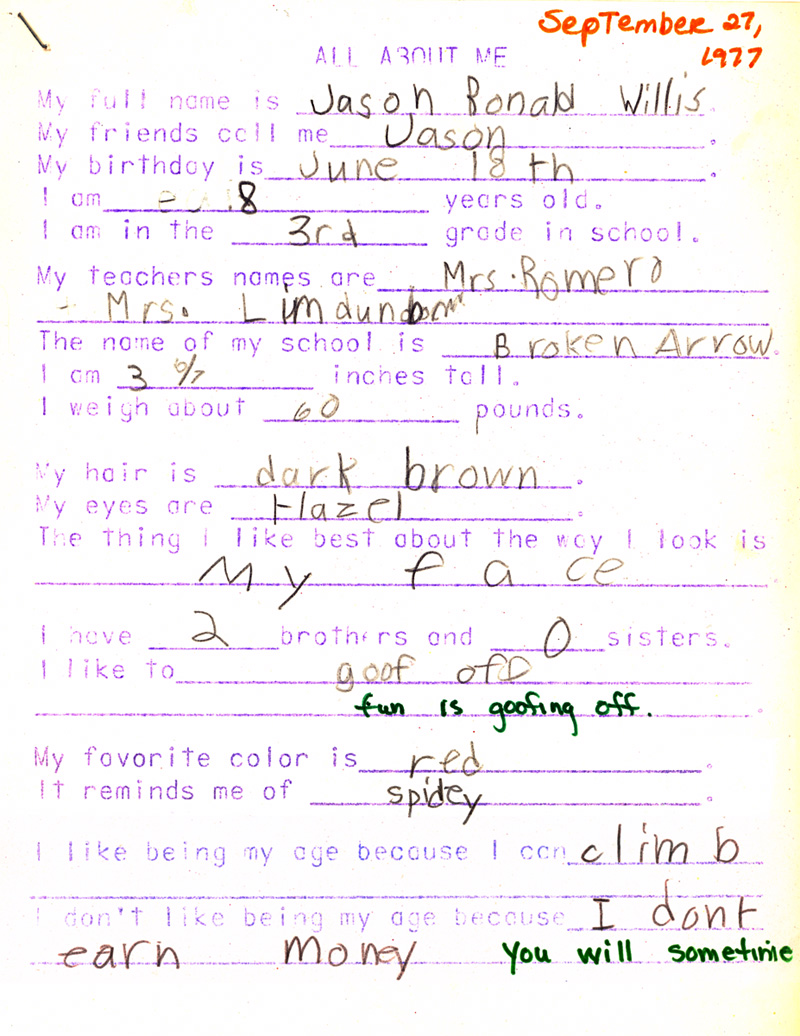 September 27,
1977
ALL ABOUT ME
My full name is Jason Ronald Willis.
My friends call me Jason.
My birthday is June 18th.
I am 8 years old.
I am in the 3rd grade in school.
My teachers names are Mrs. Romero
Mrs.
The name of my school is Broken Arrow.
I am 3 inches tall.
I weigh about 60 pounds.
My hair is dark brown.
My eyes are Hazel.
The thing I like best about the way I look is
My face
I have 2 brothers and 0 sisters.
I like to goof off
fun is goofing off.
My favorite color is red.
It reminds me of spidey.
I like being my age because I can climb
I don't like being my age because I dont
earn money You will sometime